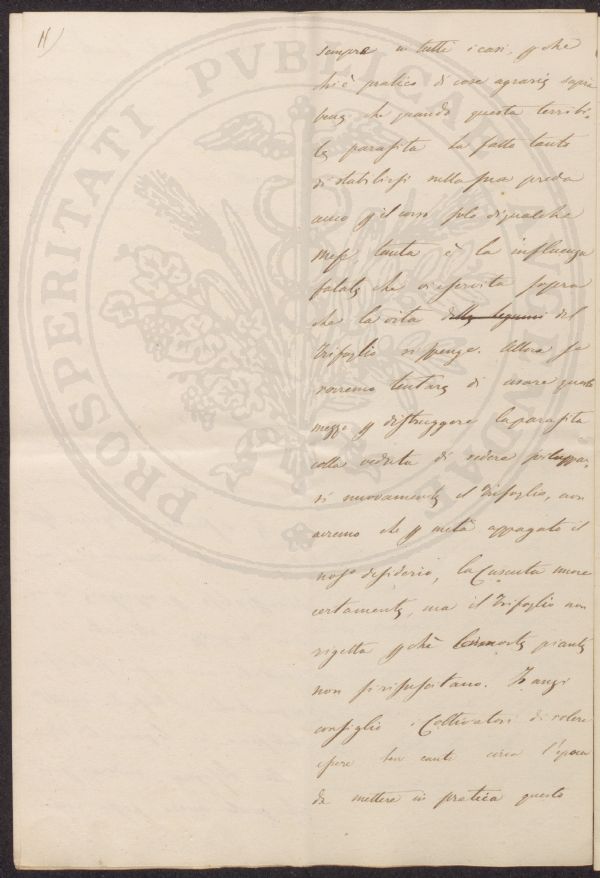 11)
PROSPERITATI PVBLICAE AVGENDAE
sempre in tutti i casi, pchè
chi è pratico di cose agrarie saprà
bene che quando questa terribi-
le parasita ha fatto tanto
di stabilirsi nella sua preda
anco p il corso solo di qualche
mese, tanta è la influenza
fatale che vi esercita sopra
che la vita delle legumi del
Trifoglio si spenge. Allora se
vorremo tentare di usare questo
mezzo p distruggere la parasita
colla veduta di vedere svilupar-
si nuovamente il Trifoglio, non
avremo che p metà appagato il
nos° desiderio, la Cuscuta muore
certamente, ma il Trifoglio non
rigetta pchè le morte piante
non si risuscitano. Io anzi
consiglio i Coltivatori di volere
essere ben cauti circa l'epoca
da mettere in pratica questo